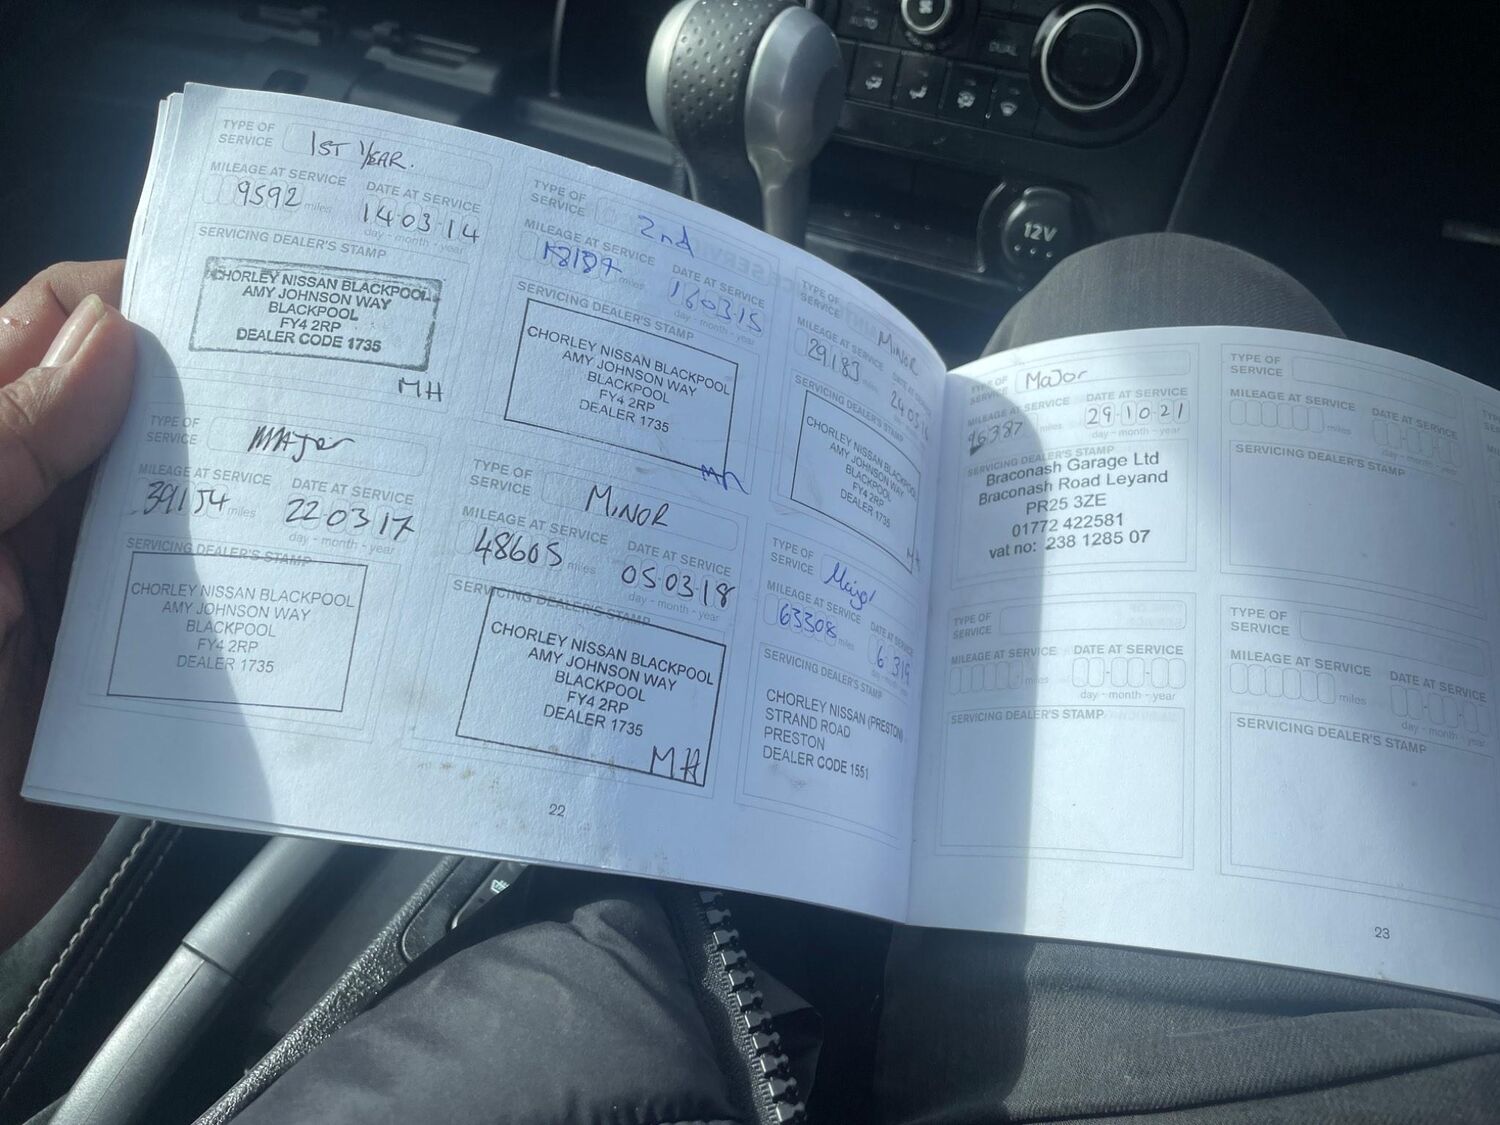 TYPE OF SERVICE 1ST YEAR.
MILEAGE AT SERVICE DATE AT SERVICE
9592 miles 14-03-14
day - month - year
SERVICING DEALER'S STAMP
CHORLEY NISSAN BLACKPOOL
AMY JOHNSON WAY
BLACKPOOL
FY4 2RP
DEALER CODE 1735
MH
TYPE OF SERVICE 2nd
MILEAGE AT SERVICE DATE AT SERVICE
miles 16 03 15
day - month - year
SERVICING DEALER'S STAMP
CHORLEY NISSAN BLACKPOOL
AMY JOHNSON WAY
BLACKPOOL
FY4 2RP
DEALER 1735
TYPE OF SERVICE MINOR
MILEAGE AT SERVICE DATE AT
29183 miles
SERVICING DEALER'S STAMP
CHORLEY NISSAN
AMY JOHNSON WAY
BLACKPOOL
FY4 2RP
DEALER 1735
TYPE OF SERVICE MAJOR
MILEAGE AT SERVICE DATE AT SERVICE
39154 miles 22-03-17
day - month - year
SERVICING DEALER'S STAMP
CHORLEY NISSAN BLACKPOOL
AMY JOHNSON WAY
BLACKPOOL
FY4 2RP
DEALER 1735
TYPE OF SERVICE MINOR
MILEAGE AT SERVICE DATE AT SERVICE
48605 miles 05-03-18
day - month - year
SERVICING DEALER'S STAMP
CHORLEY NISSAN BLACKPOOL
AMY JOHNSON WAY
BLACKPOOL
FY4 2RP
DEALER 1735
MH
TYPE OF SERVICE Major
MILEAGE AT SERVICE DATE AT
63308 miles 6 3 19
SERVICING DEALER'S STAMP
CHORLEY NISSAN (PRESTON)
STRAND ROAD
PRESTON
DEALER CODE 1551
22
TYPE OF SERVICE Major
MILEAGE AT SERVICE DATE AT SERVICE
96387 miles 29-10-21
day - month - year
SERVICING DEALER'S STAMP
Braconash Garage Ltd
Braconash Road Leyland
PR25 3ZE
01772 422581
vat no: 238 1285 07
TYPE OF SERVICE
MILEAGE AT SERVICE DATE AT SERVICE
miles
day - month - year
SERVICING DEALER'S STAMP
TYPE OF SERVICE
MILEAGE AT SERVICE DATE AT SERVICE
miles
day - month - year
SERVICING DEALER'S STAMP
TYPE OF SERVICE
MILEAGE AT SERVICE DATE AT SERVICE
miles
day - month - year
SERVICING DEALER'S STAMP
23
AUTO
DUAL
12V